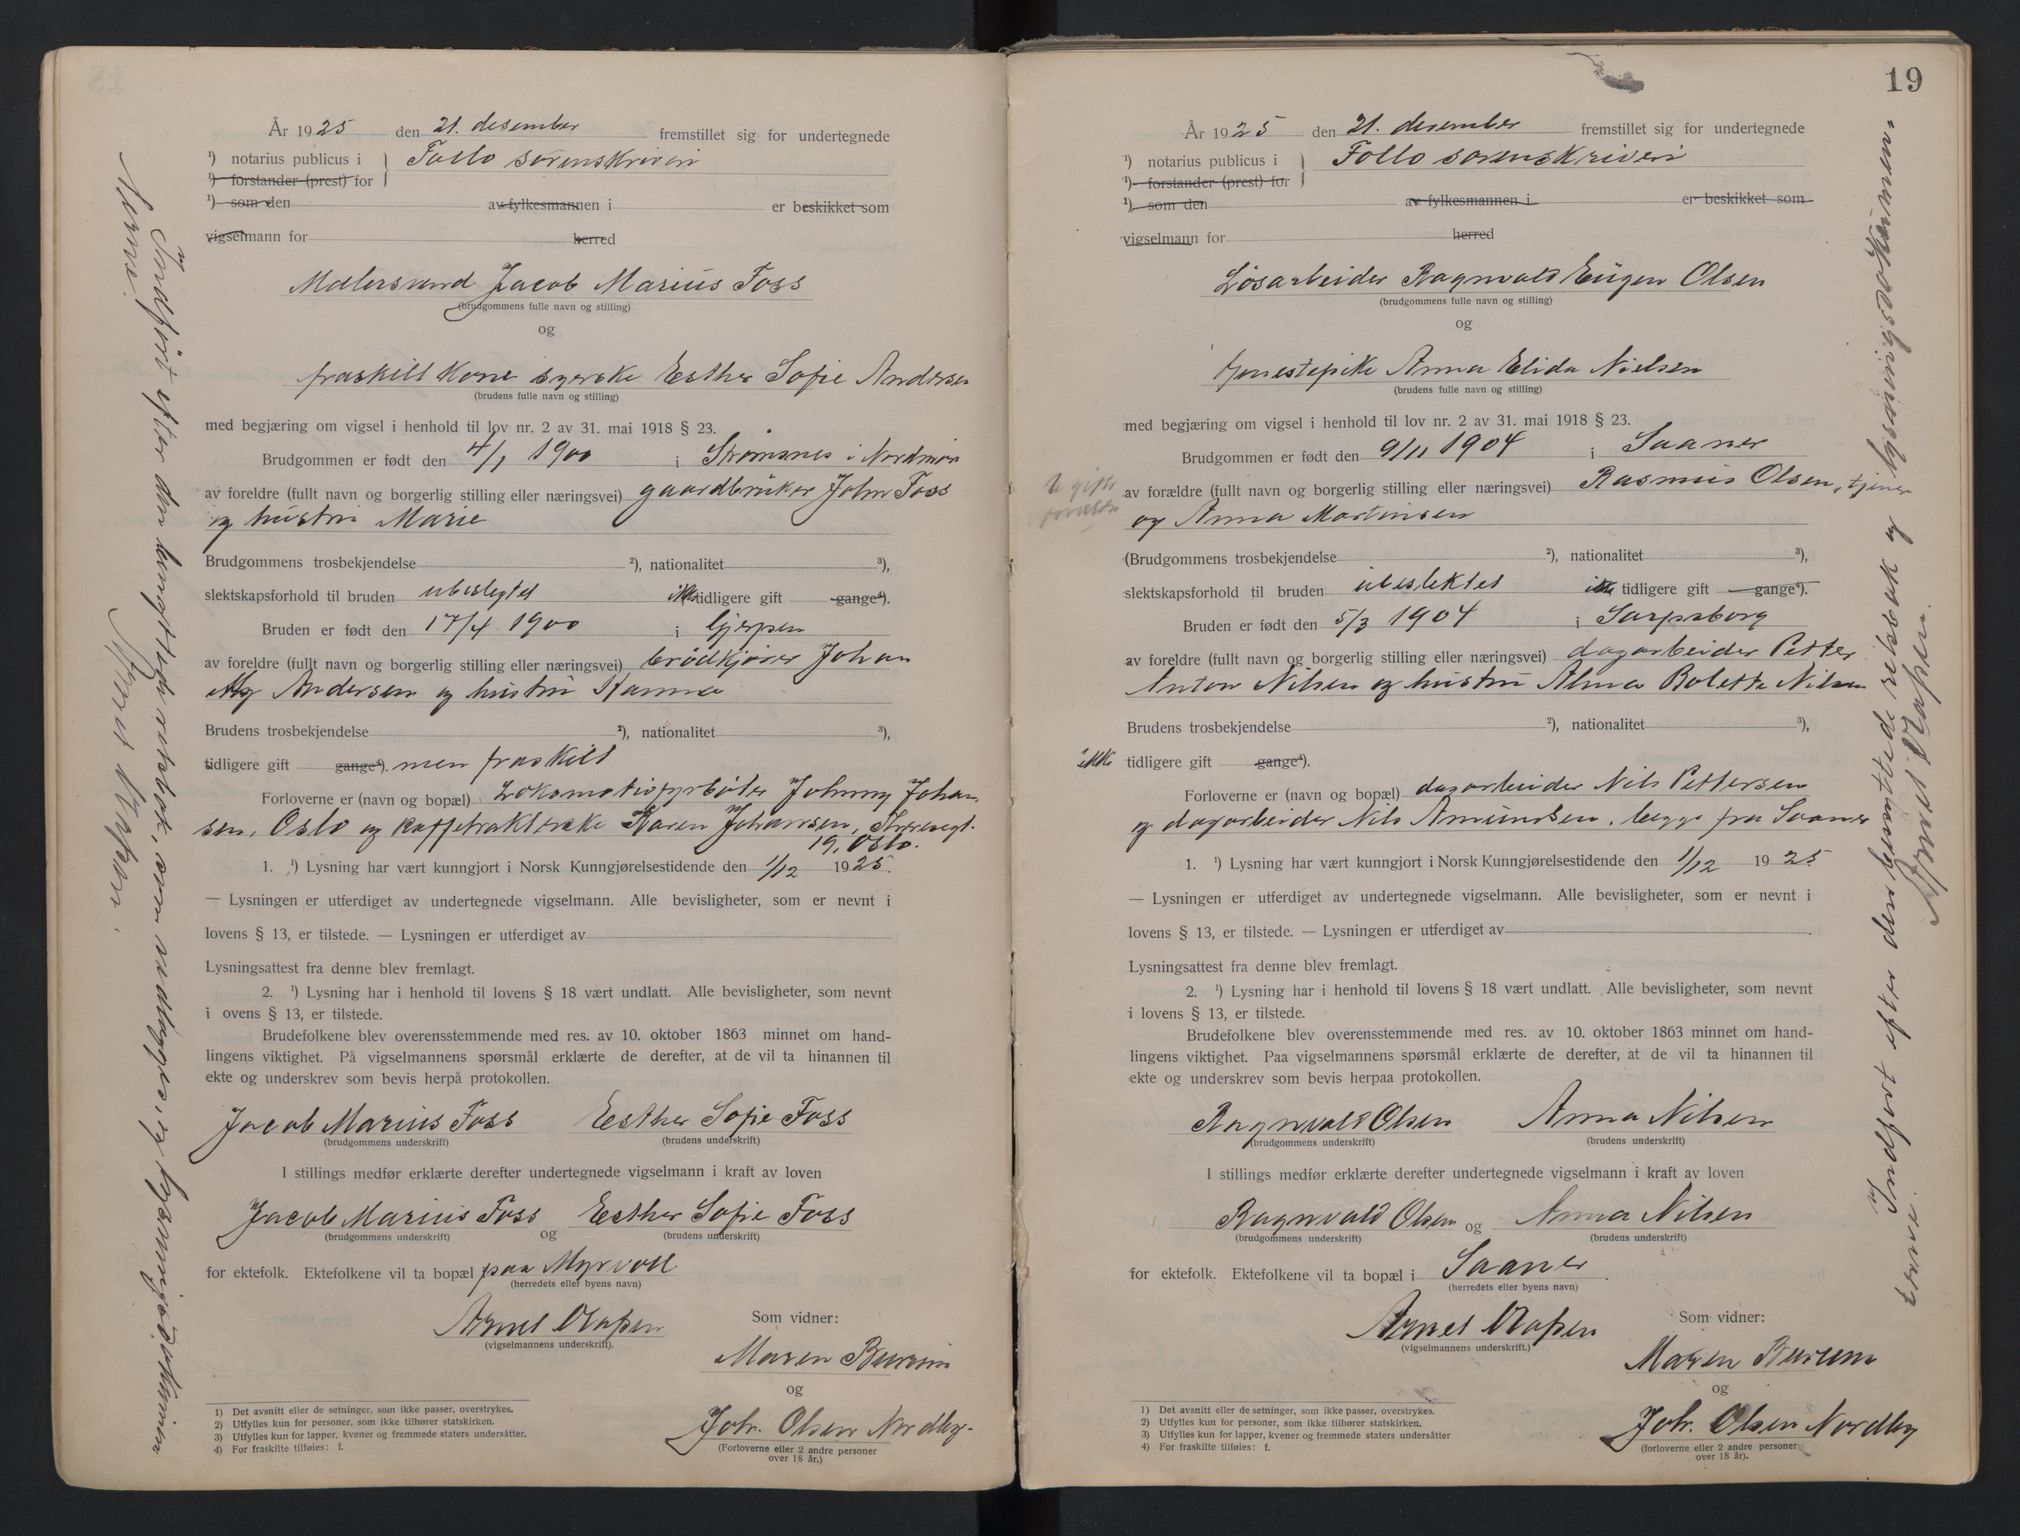 År 1925 den 21. desember fremstillet sig for undertegnede
¹) notarius publicus i } Follo sorenskriveri
¹) forstander (prest) for
¹) som den av fylkesmannen i er beskikket som
vigselmann for herred
Malersvend Jacob Marius Foss
(brudgommens fulle navn og stilling)
og
fraskilt kone syerske Esther Sofie Andersen
(brudens fulle navn og stilling)
med begjæring om vigsel i henhold til lov nr. 2 av 31. mai 1918 § 23.
Brudgommen er født den 4/1 1900 i Strømsnes i Nordmør
av foreldre (fullt navn og borgerlig stilling eller næringsvei) gaardbruker John Foss
og hustru Marie
Brudgommens trosbekjendelse ²), nationalitet ³),
slektskapsforhold til bruden ubeslegtet ikke tidligere gift gange⁴).
Bruden er født den 17/4 1900 i Gjerpen
av foreldre (fullt navn og borgerlig stilling eller næringsvei) brödkjører Johan
Andersen og hustru Hanna
Brudens trosbekjendelse ²), nationalitet ³),
tidligere gift gange⁴). men fraskilt
Forloverne er (navn og bopæl) Lokomotivfyrbøter Johnny Johan-
sen, Oslo og kaffetrakterske Karen Johansen,
19, Oslo.
1. ¹) Lysning har vært kunngjort i Norsk Kunngjørelsestidende den 1/12 1925.
— Lysningen er utferdiget av undertegnede vigselmann. Alle bevisligheter, som er nevnt i
lovens § 13, er tilstede. — Lysningen er utferdiget av
Lysningsattest fra denne blev fremlagt.
2. ¹) Lysning har i henhold til lovens § 18 vært undlatt. Alle bevisligheter, som nevnt
i ovens § 13, er tilstede.
Brudefolkene blev overensstemmende med res. av 10. oktober 1863 minnet om hand-
lingens viktighet. På vigselmannens spørsmål erklærte de derefter, at de vil ta hinannen til
ekte og underskrev som bevis herpå protokollen.
Jacob Marius Foss Esther Sofie Foss
(brudgommens underskrift) (brudens underskrift)
I stillings medfør erklærte derefter undertegnede vigselmann i kraft av loven
Jacob Marius Foss og Esther Sofie Foss
(brudgommens underskrift) (brudens underskrift)
for ektefolk. Ektefolkene vil ta bopæl paa Myrvoll
(herredets eller byens navn)
(vigselmannens underskrift).
Som vidner:
Maren
og
Joh. Olsen Nordby
(Forloverne eller 2 andre personer
over 18 år.)
1) Det avsnitt eller de setninger, som ikke passer, overstrykes.
2) Utfylles kun for personer, som ikke tilhører statskirken.
3) Utfylles kun for lapper, kvener og fremmede staters undersåtter.
4) For fraskilte tilføies: f.
Indført efter den benyttede relsbok, som vedlegges, og lysningsdokumen-
terne.
19
År 1925 den 21. desember fremstillet sig for undertegnede
¹) notarius publicus i } Follo sorenskriveri
¹) forstander (prest) for
¹) som den av fylkesmannen i er beskikket som
vigselmann for herred
Løsarbeider Ragnvald Eugen Olsen
(brudgommens fulle navn og stilling)
og
tjenestepike Anna Elida Nielsen
(brudens fulle navn og stilling)
med begjæring om vigsel i henhold til lov nr. 2 av 31. mai 1918 § 23.
Brudgommen er født den 9/11 1904 i Saaner
Ugifte
foreldre
av forældre (fullt navn og borgerlig stilling eller næringsvei) Rasmus Olsen, tjener
og Anna Martinsen
(Brudgommens trosbekjendelse ²), nationalitet ³),
slektskapsforhold til bruden ubeslektet ikke tidligere gift gange⁴).
Bruden er født den 5/3 1904 i Sarpsborg
av foreldre (fullt navn og borgerlig stilling eller næringsvei) dagarbeider Petter
Anton Nilsen og hustru Alma Bolette Nilsen
Brudens trosbekjendelse ²), nationalitet ³),
ikke tidligere gift gange⁴).
Forloverne er (navn og bopæl) dagarbeider Nils Pettersen
og dagarbeider Nils Amundsen, begge fra Saaner
1. ¹) Lysning har vært kunngjort i Norsk Kunngjørelsestidende den 1/12 1925
— Lysningen er utferdiget av undertegnede vigselmann. Alle bevisligheter, som er nevnt i
lovens § 13, er tilstede. — Lysningen er utferdiget av
Lysningsattest fra denne blev fremlagt.
2. ¹) Lysning har i henhold til lovens § 18 vært undlatt. Alle bevisligheter, som nevnt
i lovens § 13, er tilstede.
Brudefolkene blev overensstemmende med res. av 10. oktober 1863 minnet om hand-
lingens viktighet. Paa vigselmannens spørsmål erklærte de derefter, at de vil ta hinannen til
ekte og underskrev som bevis herpaa protokollen.
Ragnvald Olsen Anna Nilsen
(brudgommens underskrift) (brudens underskrift)
I stillings medfør erklærte derefter undertegnede vigselmann i kraft av loven
Ragnvald Olsen og Anna Nilsen
(brudgommens underskrift) (brudens underskrift)
for ektefolk. Ektefolkene vil ta bopæl i Saaner.
(herredets eller byens navn)
(vigselmannens underskrift.)
Som vidner:
Maren
og
Joh. Olsen Nordby
(forloverne eller 2 andre personer
over 18 år).
1) Det avsnitt eller de setninger, som ikke passer, overstrykes.
2) Utfylles kun for personer, som ikke tilhører statskirken.
3) Utfylles kun for lapper, kvener og fremmede staters undersåtter
4) For fraskilte tilføies: f.
Indført efter den benyttede relsbok og lysningsdokumen-
terne.